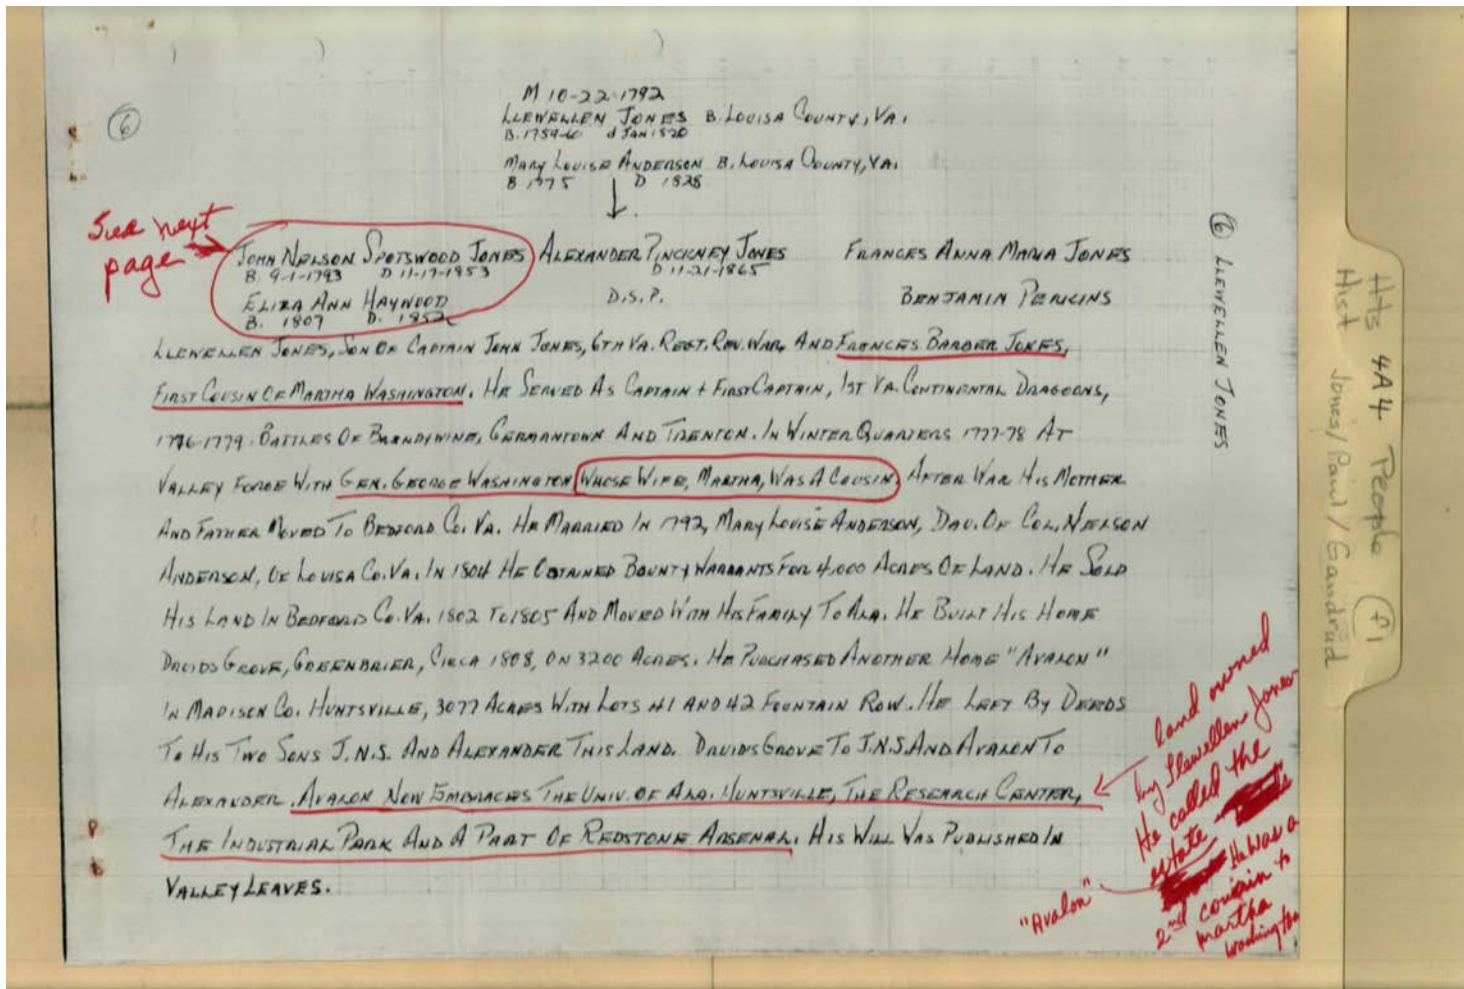 M 10-22-1792
LLEWELLEN JONES B. LOUISA COUNTY, VA.
B. 1759-60 d JAN 1820
MARY LOUISE ANDERSON B. LOUISA COUNTY, VA.
B 1775 D 1828
6
See next
page
JOHN NELSON SPOTSWOOD JONES ALEXANDER PINCKNEY JONES FRANCES ANNA MARIA JONES
B. 9-1-1793 D 11-17-1853 D 11-21-1865
ELIZA ANN HAYWOOD D.S.P. BENJAMIN PERKINS
B. 1807 D. 1852
LLEWELLEN JONES, SON OF CAPTAIN JOHN JONES, 6TH VA. REGT. REV. WAR, AND FRANCES BARBER JONES,
FIRST COUSIN OF MARTHA WASHINGTON. HE SERVED AS CAPTAIN + FIRST CAPTAIN, 1ST VA. CONTINENTAL DRAGOONS,
1776-1779. BATTLES OF BRANDYWINE, GERMANTOWN AND TRENTON. IN WINTER QUARTERS 1777-78 AT
VALLEY FORGE WITH GEN. GEORGE WASHINGTON WHOSE WIFE, MARTHA, WAS A COUSIN. AFTER WAR HIS MOTHER
AND FATHER MOVED TO BEDFORD CO. VA. HE MARRIED IN 1792, MARY LOUISE ANDERSON, DAU. OF COL. NELSON
ANDERSON, OF LOUISA CO. VA. IN 1804 HE OBTAINED BOUNTY WARRANTS FOR 4,000 ACRES OF LAND. HE SOLD
HIS LAND IN BEDFORD CO. VA. 1802 TO 1805 AND MOVED WITH HIS FAMILY TO ALA. HE BUILT HIS HOME
DRUIDS GROVE, GREENBRIER, CIRCA 1808, ON 3200 ACRES. HE PURCHASED ANOTHER HOME "AVALON"
IN MADISON CO. HUNTSVILLE, 3077 ACRES WITH LOTS 41 AND 42 FOUNTAIN ROW. HE LEFT BY DEEDS
TO HIS TWO SONS J.N.S. AND ALEXANDER THIS LAND. DRUIDS GROVE TO J.N.S AND AVALON TO
ALEXANDER. AVALON NOW EMBRACES THE UNIV. OF ALA. HUNTSVILLE, THE RESEARCH CENTER,
THE INDUSTRIAL PARK AND A PART OF REDSTONE ARSENAL. HIS WILL WAS PUBLISHED IN
VALLEY LEAVES.
land owned
by Llewellen Jones
He called the
estate
"Avalon"
He was a
2nd cousin to
Martha
Washington
6 LLEWELLEN JONES
Hts 4A4 People f1
Hist Jones/Paul/Gandrud